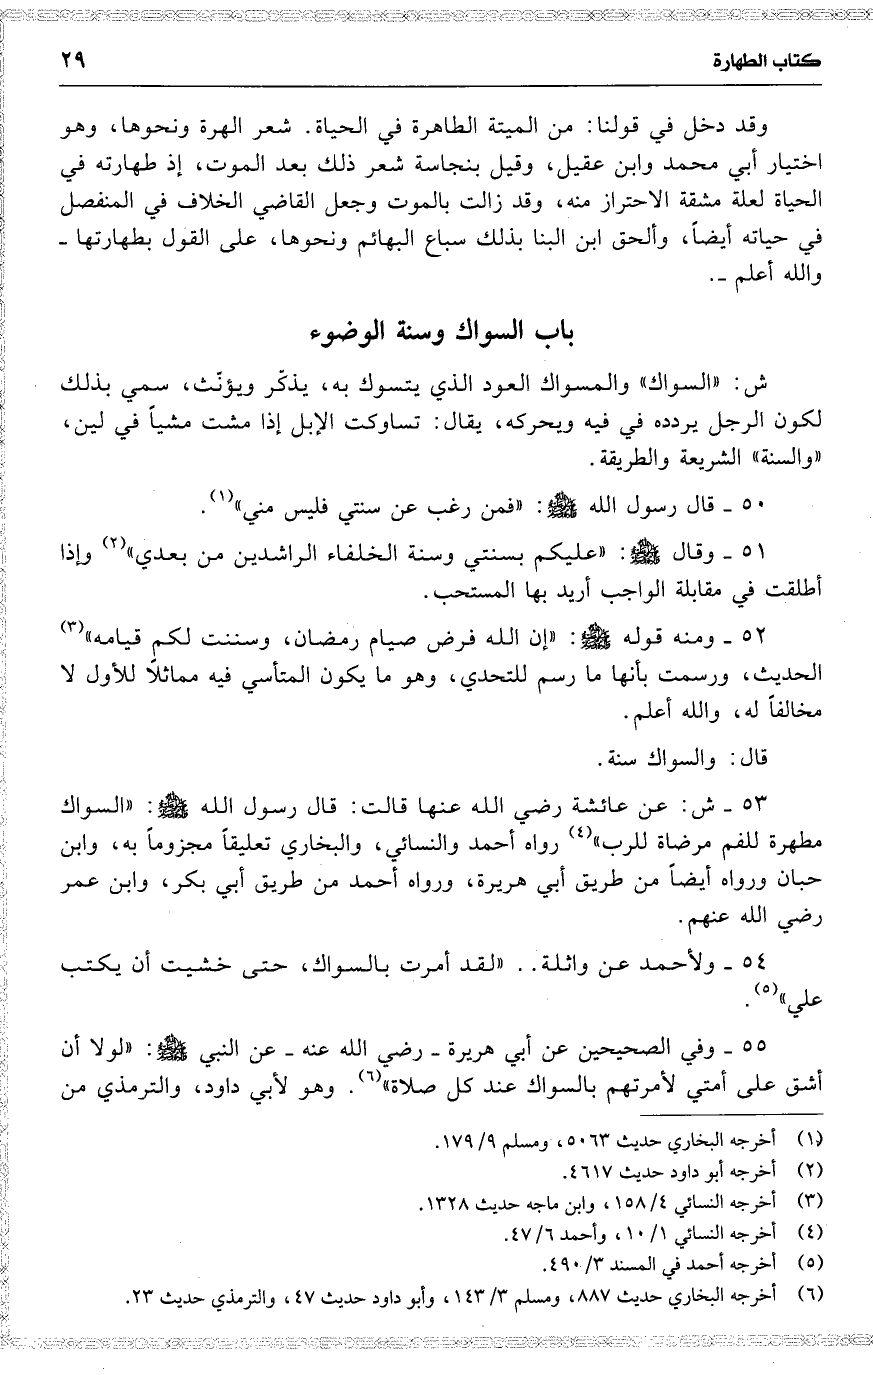 كتاب الطهارة
٢٩
وقد دخل في قولنا: من الميتة الطاهرة في الحياة. شعر الهرة ونحوها، وهو
اختيار أبي محمد وابن عقيل، وقيل بنجاسة شعر ذلك بعد الموت، إذ طهارته في
الحياة لعلة مشقة الاحتراز منه، وقد زالت بالموت وجعل القاضي الخلاف في المنفصل
في حياته أيضاً، وألحق ابن البنا بذلك سباع البهائم ونحوها، على القول بطهارتها ـ
والله أعلم ـ.
باب السواك وسنة الوضوء
ش: «السواك» والمسواك العود الذي يتسوك به، يذكّر ويؤنّث، سمي بذلك
لكون الرجل يردده في فيه ويحركه، يقال: تساوكت الإبل إذا مشت مشياً في لين،
«والسنة» الشريعة والطريقة.
٥٠ ـ قال رسول الله ﷺ: «فمن رغب عن سنتي فليس مني»(١).
٥١ ـ وقال ﷺ: «عليكم بسنتي وسنة الخلفاء الراشدين من بعدي»(٢) وإذا
أطلقت في مقابلة الواجب أريد بها المستحب.
٥٢ ـ ومنه قوله ﷺ: «إن الله فرض صيام رمضان، وسننت لكم قيامه»(٣)
الحديث، ورسمت بأنها ما رسم للتحدي، وهو ما يكون المتأسي فيه مماثلاً للأول لا
مخالفاً له، والله أعلم.
قال: والسواك سنة.
٥٣ ـ ش: عن عائشة رضي الله عنها قالت: قال رسول الله ﷺ: «السواك
مطهرة للفم مرضاة للرب»(٤) رواه أحمد والنسائي، والبخاري تعليقاً مجزوماً به، وابن
حبان ورواه أيضاً من طريق أبي هريرة، ورواه أحمد من طريق أبي بكر، وابن عمر
رضي الله عنهم.
٥٤ ـ ولأحمد عن واثلة.. «لقد أمرت بالسواك، حتى خشيت أن يكتب
علي»(٥).
٥٥ ـ وفي الصحيحين عن أبي هريرة ـ رضي الله عنه ـ عن النبي ﷺ: «لولا أن
أشق على أمتي لأمرتهم بالسواك عند كل صلاة»(٦). وهو لأبي داود، والترمذي من
(١) أخرجه البخاري حديث ٥٠٦٣، ومسلم ٩/ ١٧٩.
(٢) أخرجه أبو داود حديث ٤٦١٧.
(٣) أخرجه النسائي ٤/ ١٥٨، وابن ماجه حديث ١٣٢٨.
(٤) أخرجه النسائي ١/ ١٠، وأحمد ٦/ ٤٧.
(٥) أخرجه أحمد في المسند ٣/ ٤٩٠.
(٦) أخرجه البخاري حديث ٨٨٧، ومسلم ٣/ ١٤٣، وأبو داود حديث ٤٧، والترمذي حديث ٢٣.